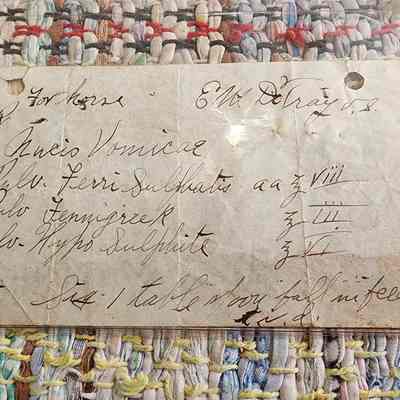 For horse E. W. DeTray V.S.
Nucis Vomicae
Pulv. Ferri Sulphatis aa ʒ viii
Pulv Fennigreek ʒ iii
Pulv. Hypo Sulphite ʒ vi
Sig. 1 table spoon full in feed
t. i. d.